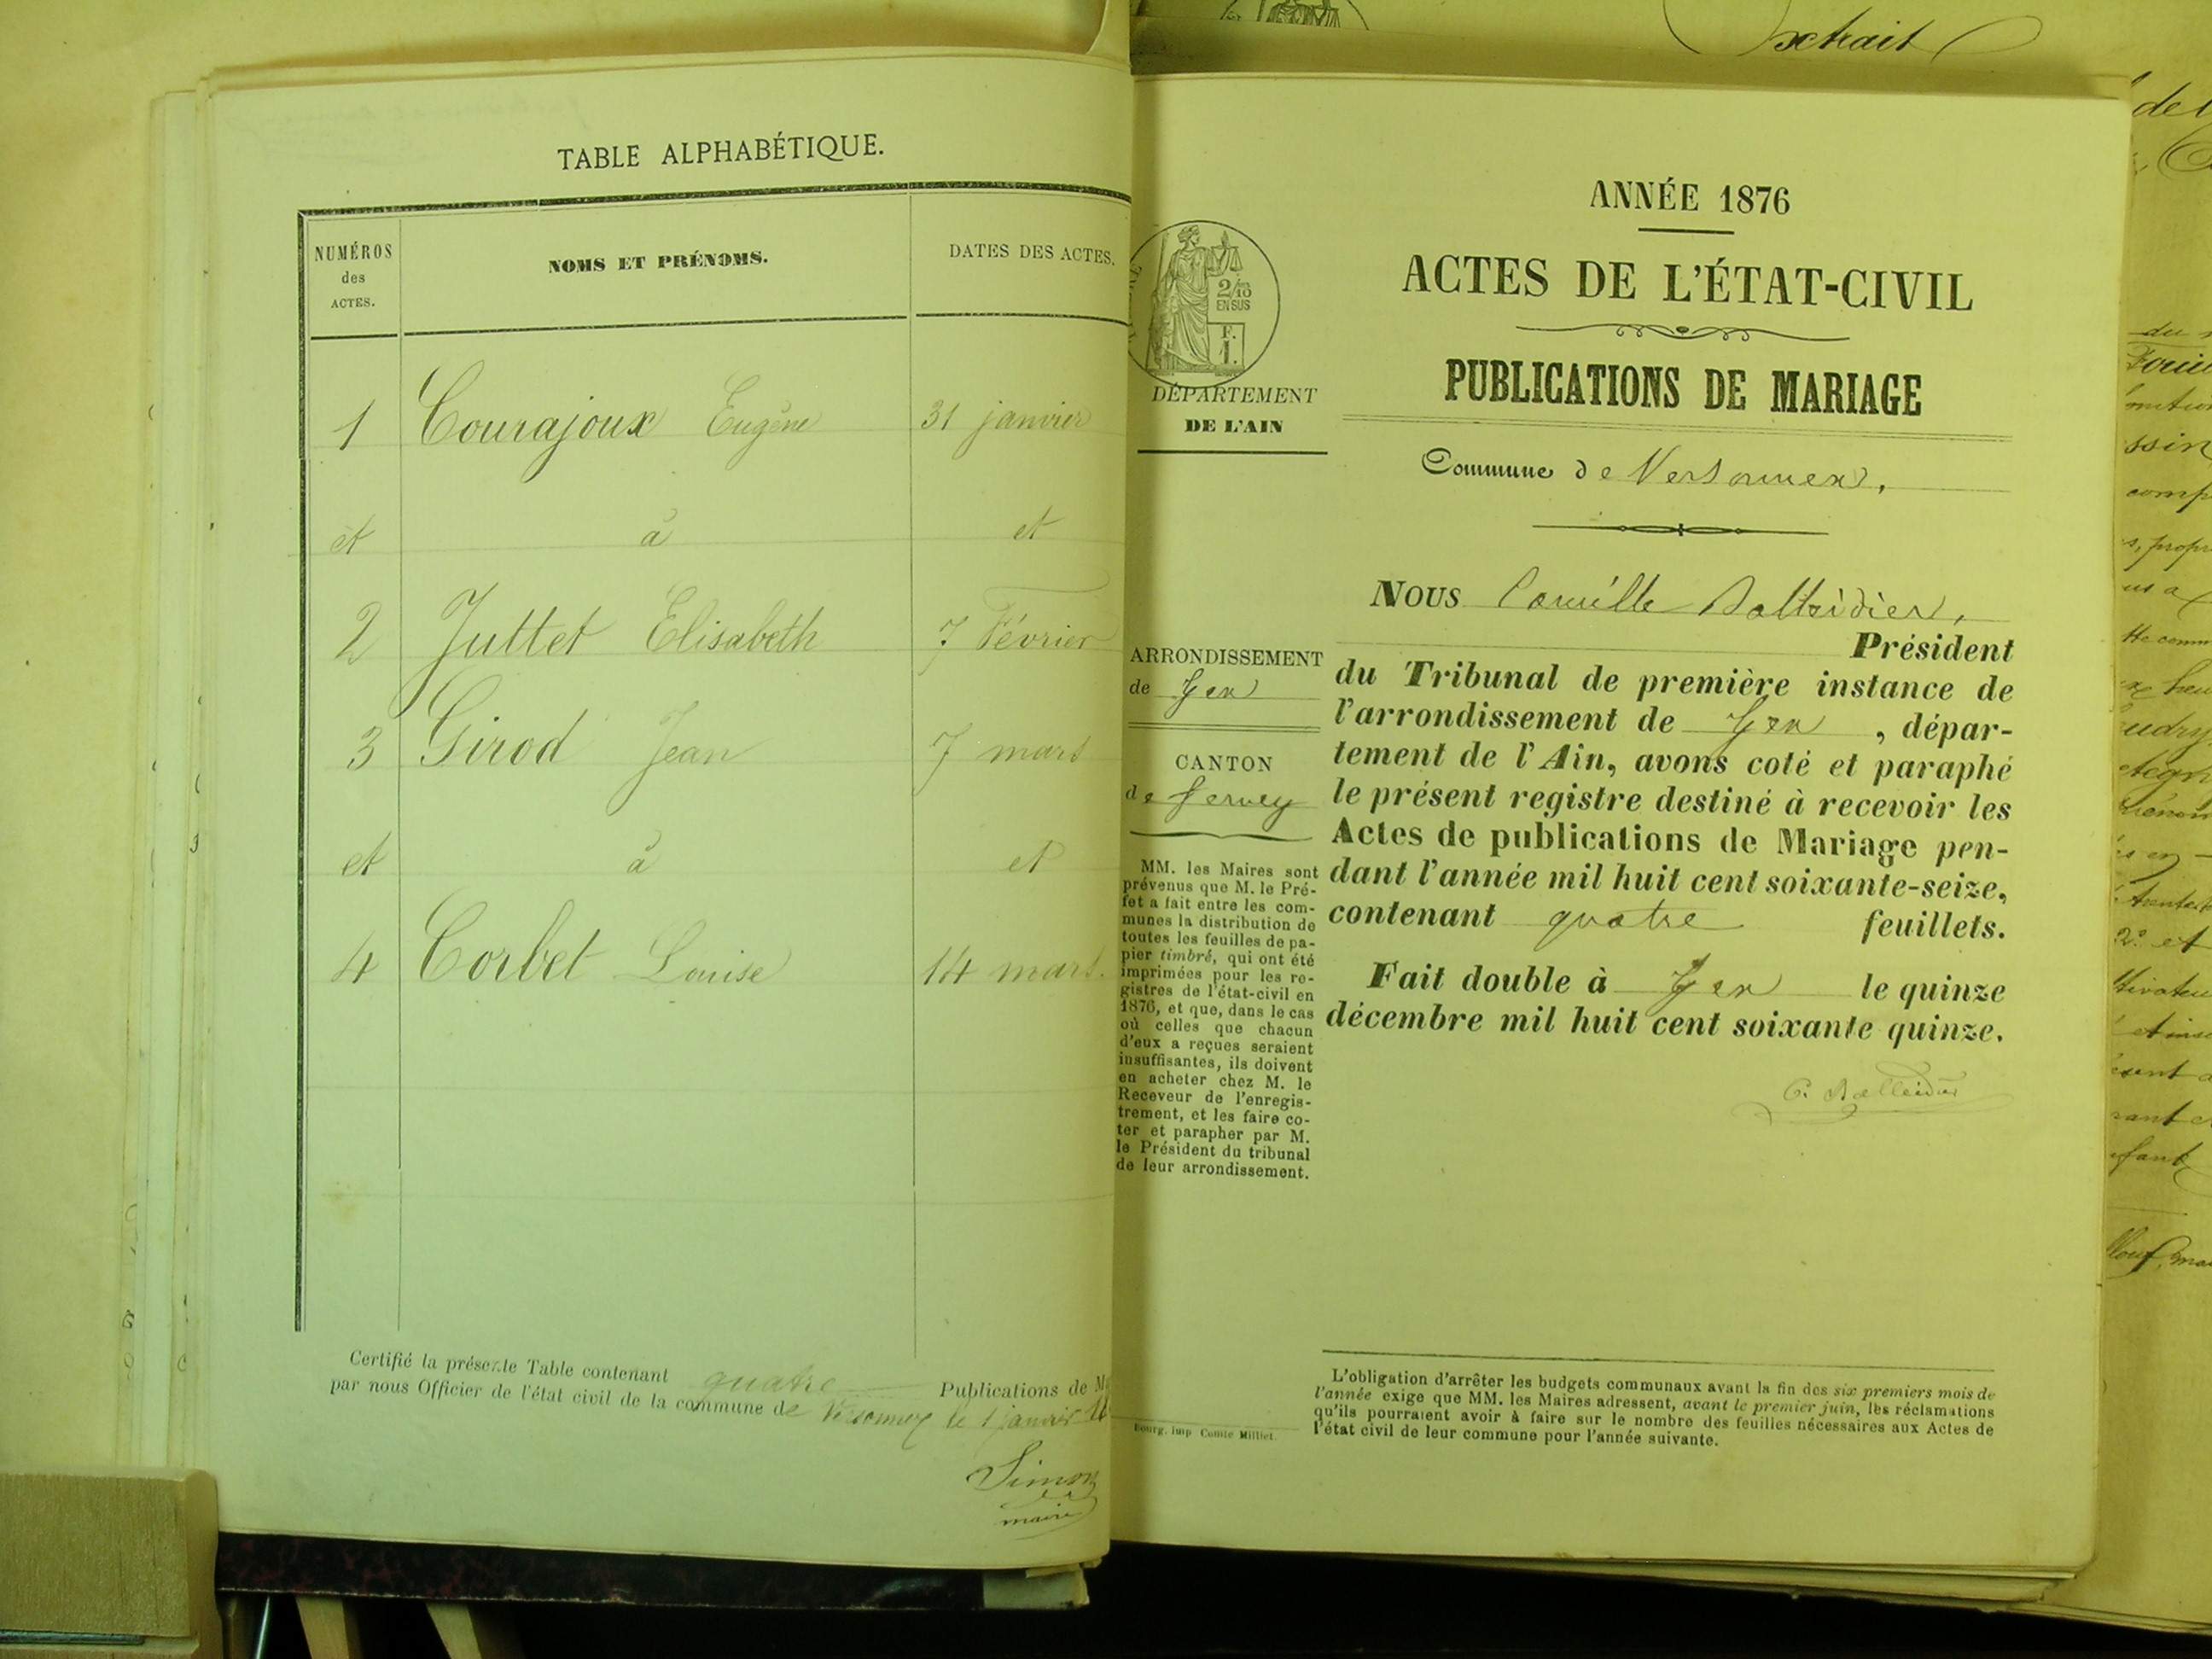 TABLE ALPHABÉTIQUE.
NUMÉROS
des
ACTES.
NOMS ET PRÉNOMS.
DATES DES ACTES.
1 Courajoux Eugène 31 janvier
et à et
2 Juttet Elisabeth 7 Février
3 Girod Jean 7 mars
et à et
4 Corbet Louise 14 mars.
Certifié la présente Table contenant quatre Publications de M
par nous Officier de l'état civil de la commune de Versonnex le 1 janvier
Simon
maire
Extrait
ANNÉE 1876
ACTES DE L'ÉTAT-CIVIL
PUBLICATIONS DE MARIAGE
2/10
EN SUS
F.
1.
DÉPARTEMENT
DE L'AIN
Commune de Versonnex,
ARRONDISSEMENT
de Gex
CANTON
de Ferney
MM. les Maires sont
prévenus que M. le Pré-
fet a fait entre les com-
munes la distribution de
toutes les feuilles de pa-
pier timbré, qui ont été
imprimées pour les re-
gistres de l'état-civil en
1876, et que, dans le cas
où celles que chacun
d'eux a reçues seraient
insuffisantes, ils doivent
en acheter chez M. le
Receveur de l'enregis-
trement, et les faire co-
ter et parapher par M.
le Président du tribunal
de leur arrondissement.
Nous Camille
Président
du Tribunal de première instance de
l'arrondissement de Gex , dépar-
tement de l'Ain, avons coté et paraphé
le présent registre destiné à recevoir les
Actes de publications de Mariage pen-
dant l'année mil huit cent soixante-seize,
contenant quatre feuillets.
Fait double à Gex le quinze
décembre mil huit cent soixante quinze.
L'obligation d'arrêter les budgets communaux avant la fin des six premiers mois de
l'année exige que MM. les Maires adressent, avant le premier juin, les réclamations
qu'ils pourraient avoir à faire sur le nombre des feuilles nécessaires aux Actes de
l'état civil de leur commune pour l'année suivante.
Bourg, imp Comte Milliet.